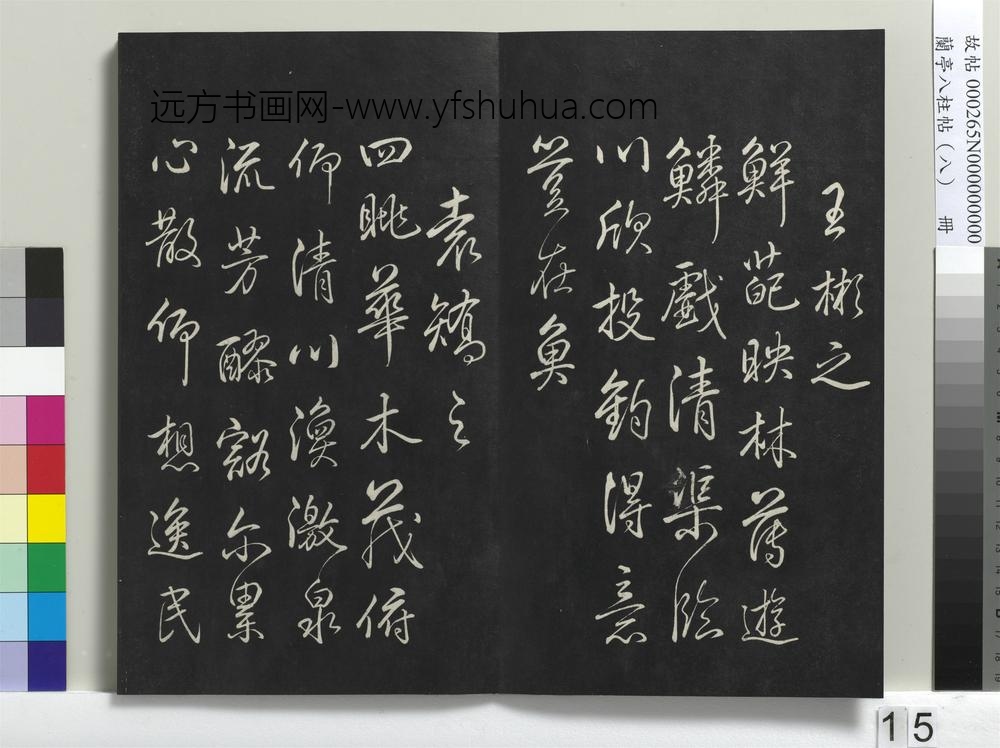 王彬之
鮮葩映林薄遊
鱗戲清渠臨
川欣投釣得意
豈在魚
袁嶠之
四眺華木茂俯
仰清川渙激泉
流芳醪豁尔累
心散仰想逸民
远方书画网-www.yfshuhua.com
故帖 000265N000000000
蘭亭八柱帖（八） 冊
15